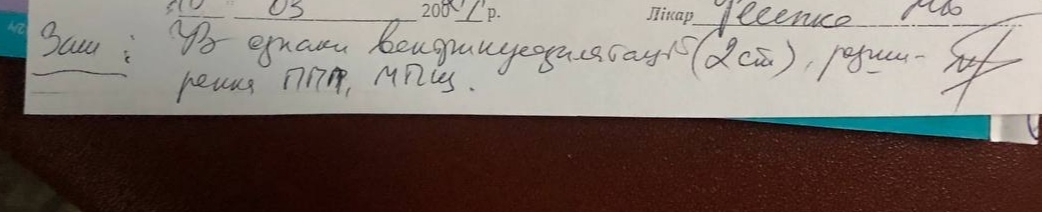 03 200 р. Лікар
Зак: УЗ ознаки вентрикулодилятації (2 ст), розши-
рення ППП, МПЩ.